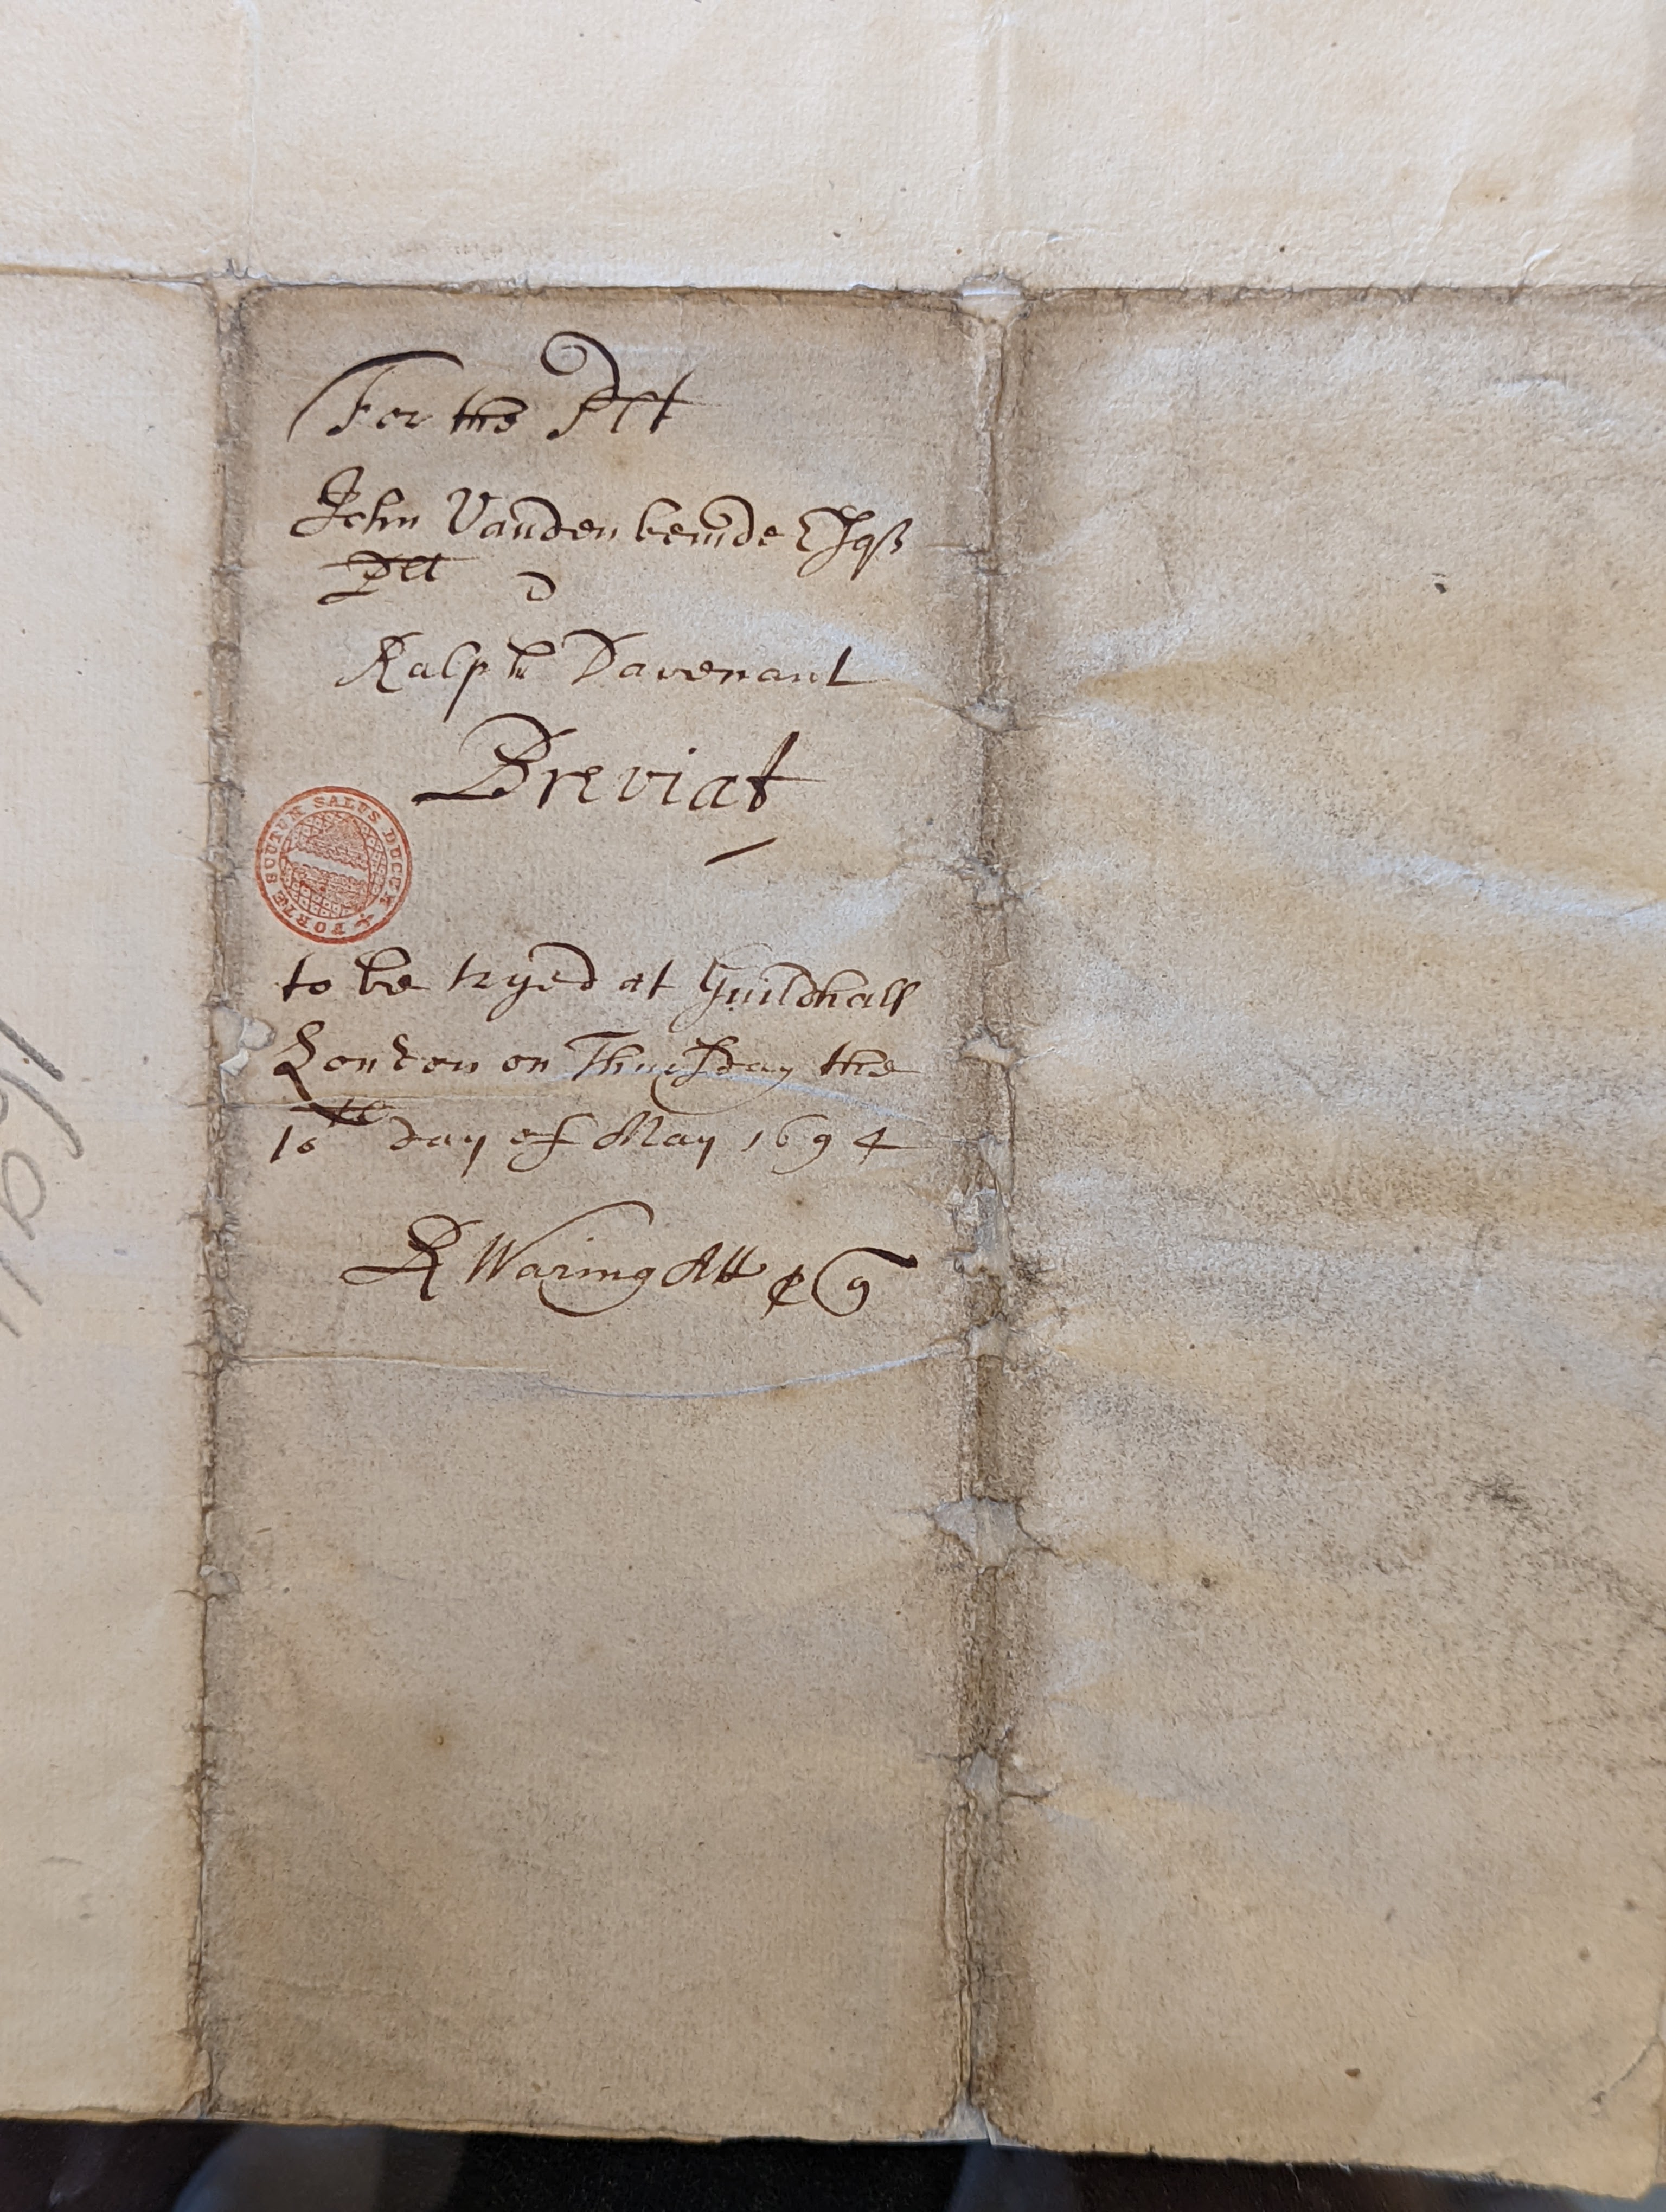 For the Plt
John Vandenbemde Esqr
Plt v
Ralph Davenant
Breviat
FORTE SCUTUM SALUS DUCUM
to be tryed at Guildhall
London on Thursday the
10th day of May 1694
R Waring Att